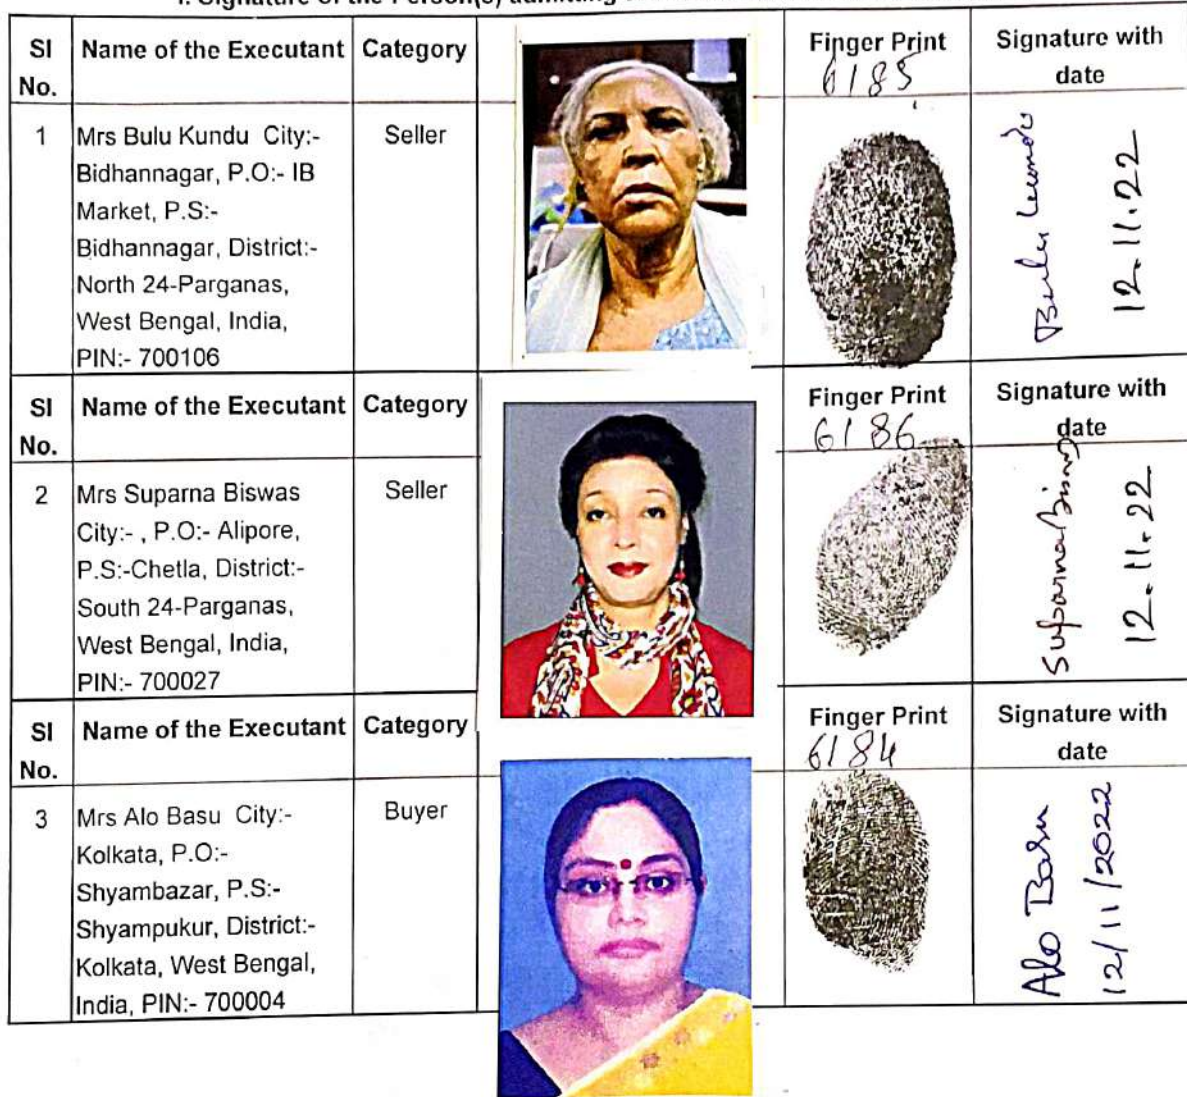 I. Signature of the Person(s) admitting
SI No. Name of the Executant Category Finger Print Signature with date
6185
1 Mrs Bulu Kundu City:- Seller
Bidhannagar, P.O:- IB
Market, P.S:-
Bidhannagar, District:-
North 24-Parganas,
West Bengal, India,
PIN:- 700106
Bulu Kundu
12.11.22
SI No. Name of the Executant Category Finger Print Signature with date
6186
2 Mrs Suparna Biswas Seller
City:- , P.O:- Alipore,
P.S:-Chetla, District:-
South 24-Parganas,
West Bengal, India,
PIN:- 700027
Suparna Biswas
12.11.22
SI No. Name of the Executant Category Finger Print Signature with date
6184
3 Mrs Alo Basu City:- Buyer
Kolkata, P.O:-
Shyambazar, P.S:-
Shyampukur, District:-
Kolkata, West Bengal,
India, PIN:- 700004
Alo Basu
12/11/2022